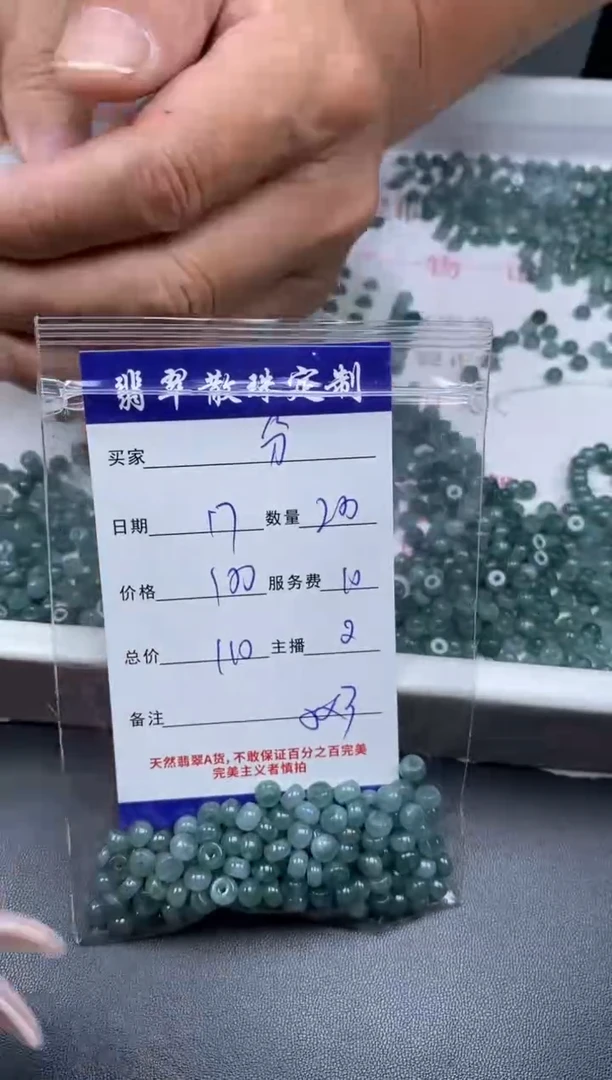 翡翠散珠定制
买家 分
日期 17 数量 200
价格 100 服务费 10
总价 110 主播 2
备注
天然翡翠A货,不敢保证百分之百完美
完美主义者慎拍
物